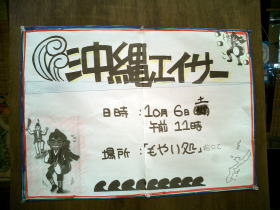 沖縄エイサー
日時：10月6日土
午前11時
場所：「もやい処」